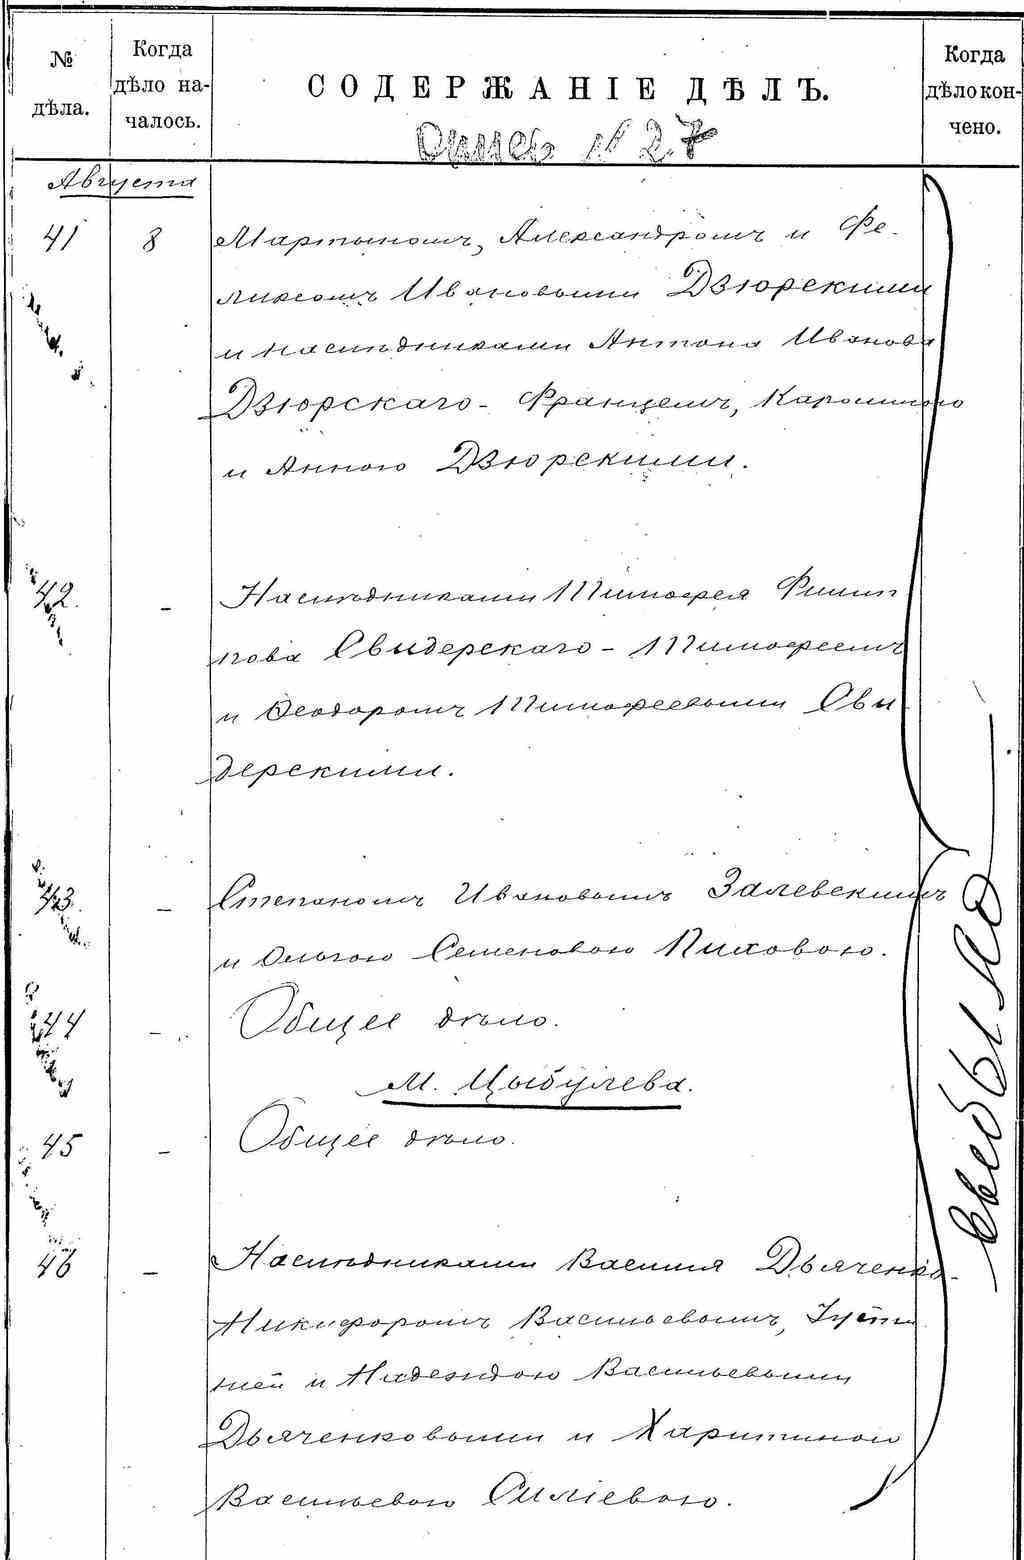 № дѣла.
Когда дѣло началось.
СОДЕРЖАНІЕ ДѢЛЪ.
Когда дѣло кончено.
Опись № 27
Августа
41 8 Мартыномъ, Александромъ и Фе-
ликсомъ Ивановыми Дзюрскими
и наслѣдниками Антона Иванова
Дзюрскаго - Францемъ, Каролиною
и Анною Дзюрскими.
42. - Наслѣдниками Тимофея Филип
пова Свидерскаго - Тимофеемъ
и Ѳеодоромъ Тимофеевыми Сви-
дерскими.
43 - Степаномъ Ивановымъ Залевскимъ
и Ольгою Семеновою Пиховою.
44 - Общее дѣло.
М. Цыбулева.
45 - Общее дѣло.
46 - Наслѣдниками Василія Дьяченко-
Никифоромъ Васильевымъ, Густи
ніей и Надеждою Васильевыми
Дьяченковыми и Харитиною
Васильевою
выбыло